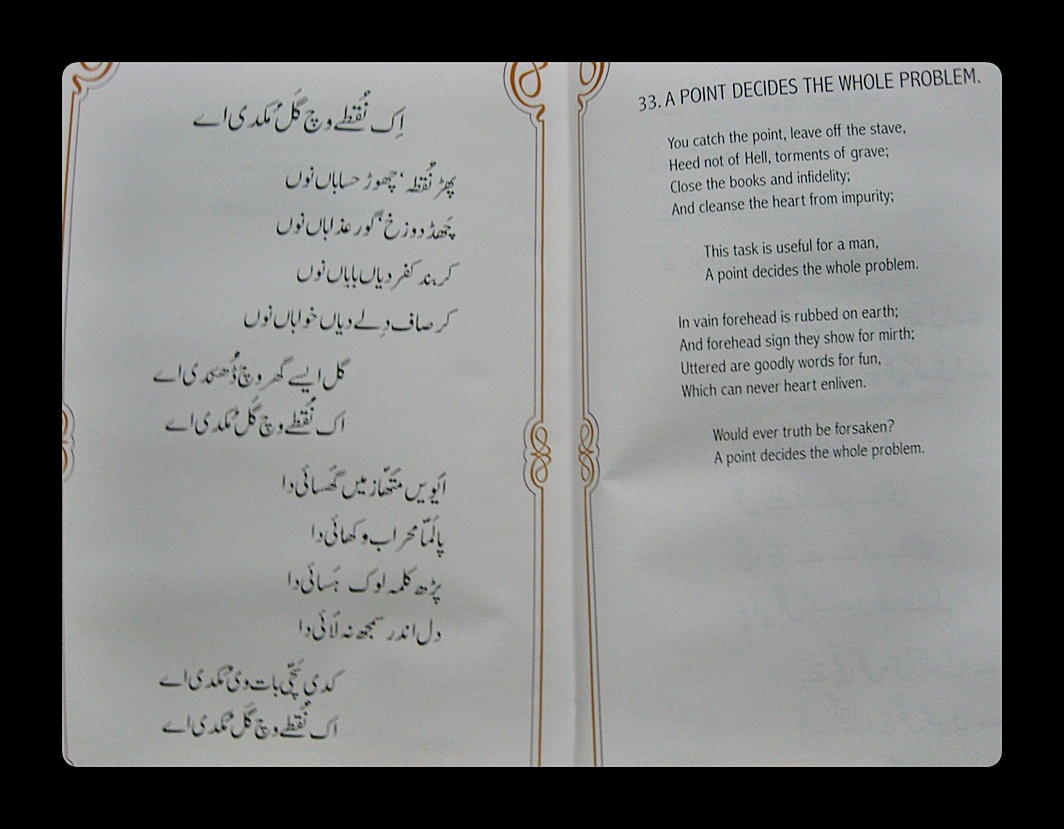 اِک نُقطے وچ گَل مُکدی اے
پھڑ نُقطہ، چھوڑ حساباں نوں
چَھڈ دوزخ، گور عذاباں نوں
کر بند کفر دیاں باباں نوں
کر صاف دِلے دیاں خواباں نوں
گل ایسے گھر وچ ڈُھکدی اے
اک نُقطے وچ گَل مُکدی اے
اَیویں متّھا زمیں گھَسائی دا
پا لمّا محراب وکھائی دا
پڑھ کلمہ لوک ہَسائی دا
دل اندر سمجھ نہ لائی دا
کدی سَچّی بات وی مُکدی اے
اک نُقطے وچ گَل مُکدی اے
33. A POINT DECIDES THE WHOLE PROBLEM.
You catch the point, leave off the stave,
Heed not of Hell, torments of grave;
Close the books and infidelity;
And cleanse the heart from impurity;
This task is useful for a man,
A point decides the whole problem.
In vain forehead is rubbed on earth;
And forehead sign they show for mirth;
Uttered are goodly words for fun,
Which can never heart enliven.
Would ever truth be forsaken?
A point decides the whole problem.